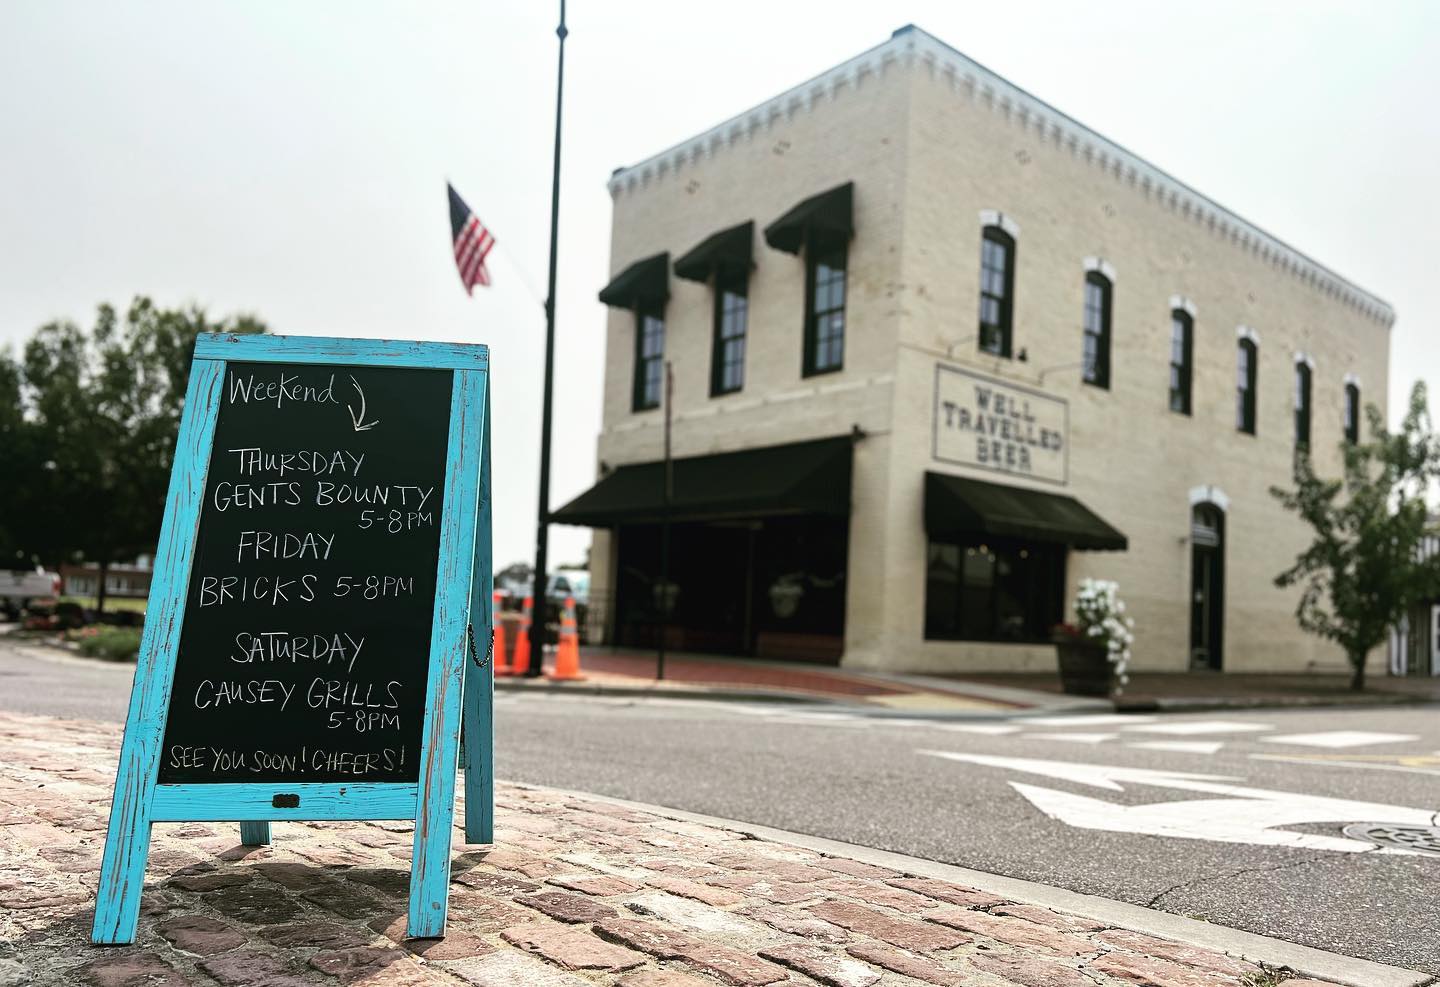 Weekend
THURSDAY
GENTS BOUNTY
5-8PM
FRIDAY
BRICKS 5-8PM
SATURDAY
CAUSEY GRILLS
5-8PM
SEE YOU SOON! CHEERS!
WELL
TRAVELLED
BEER